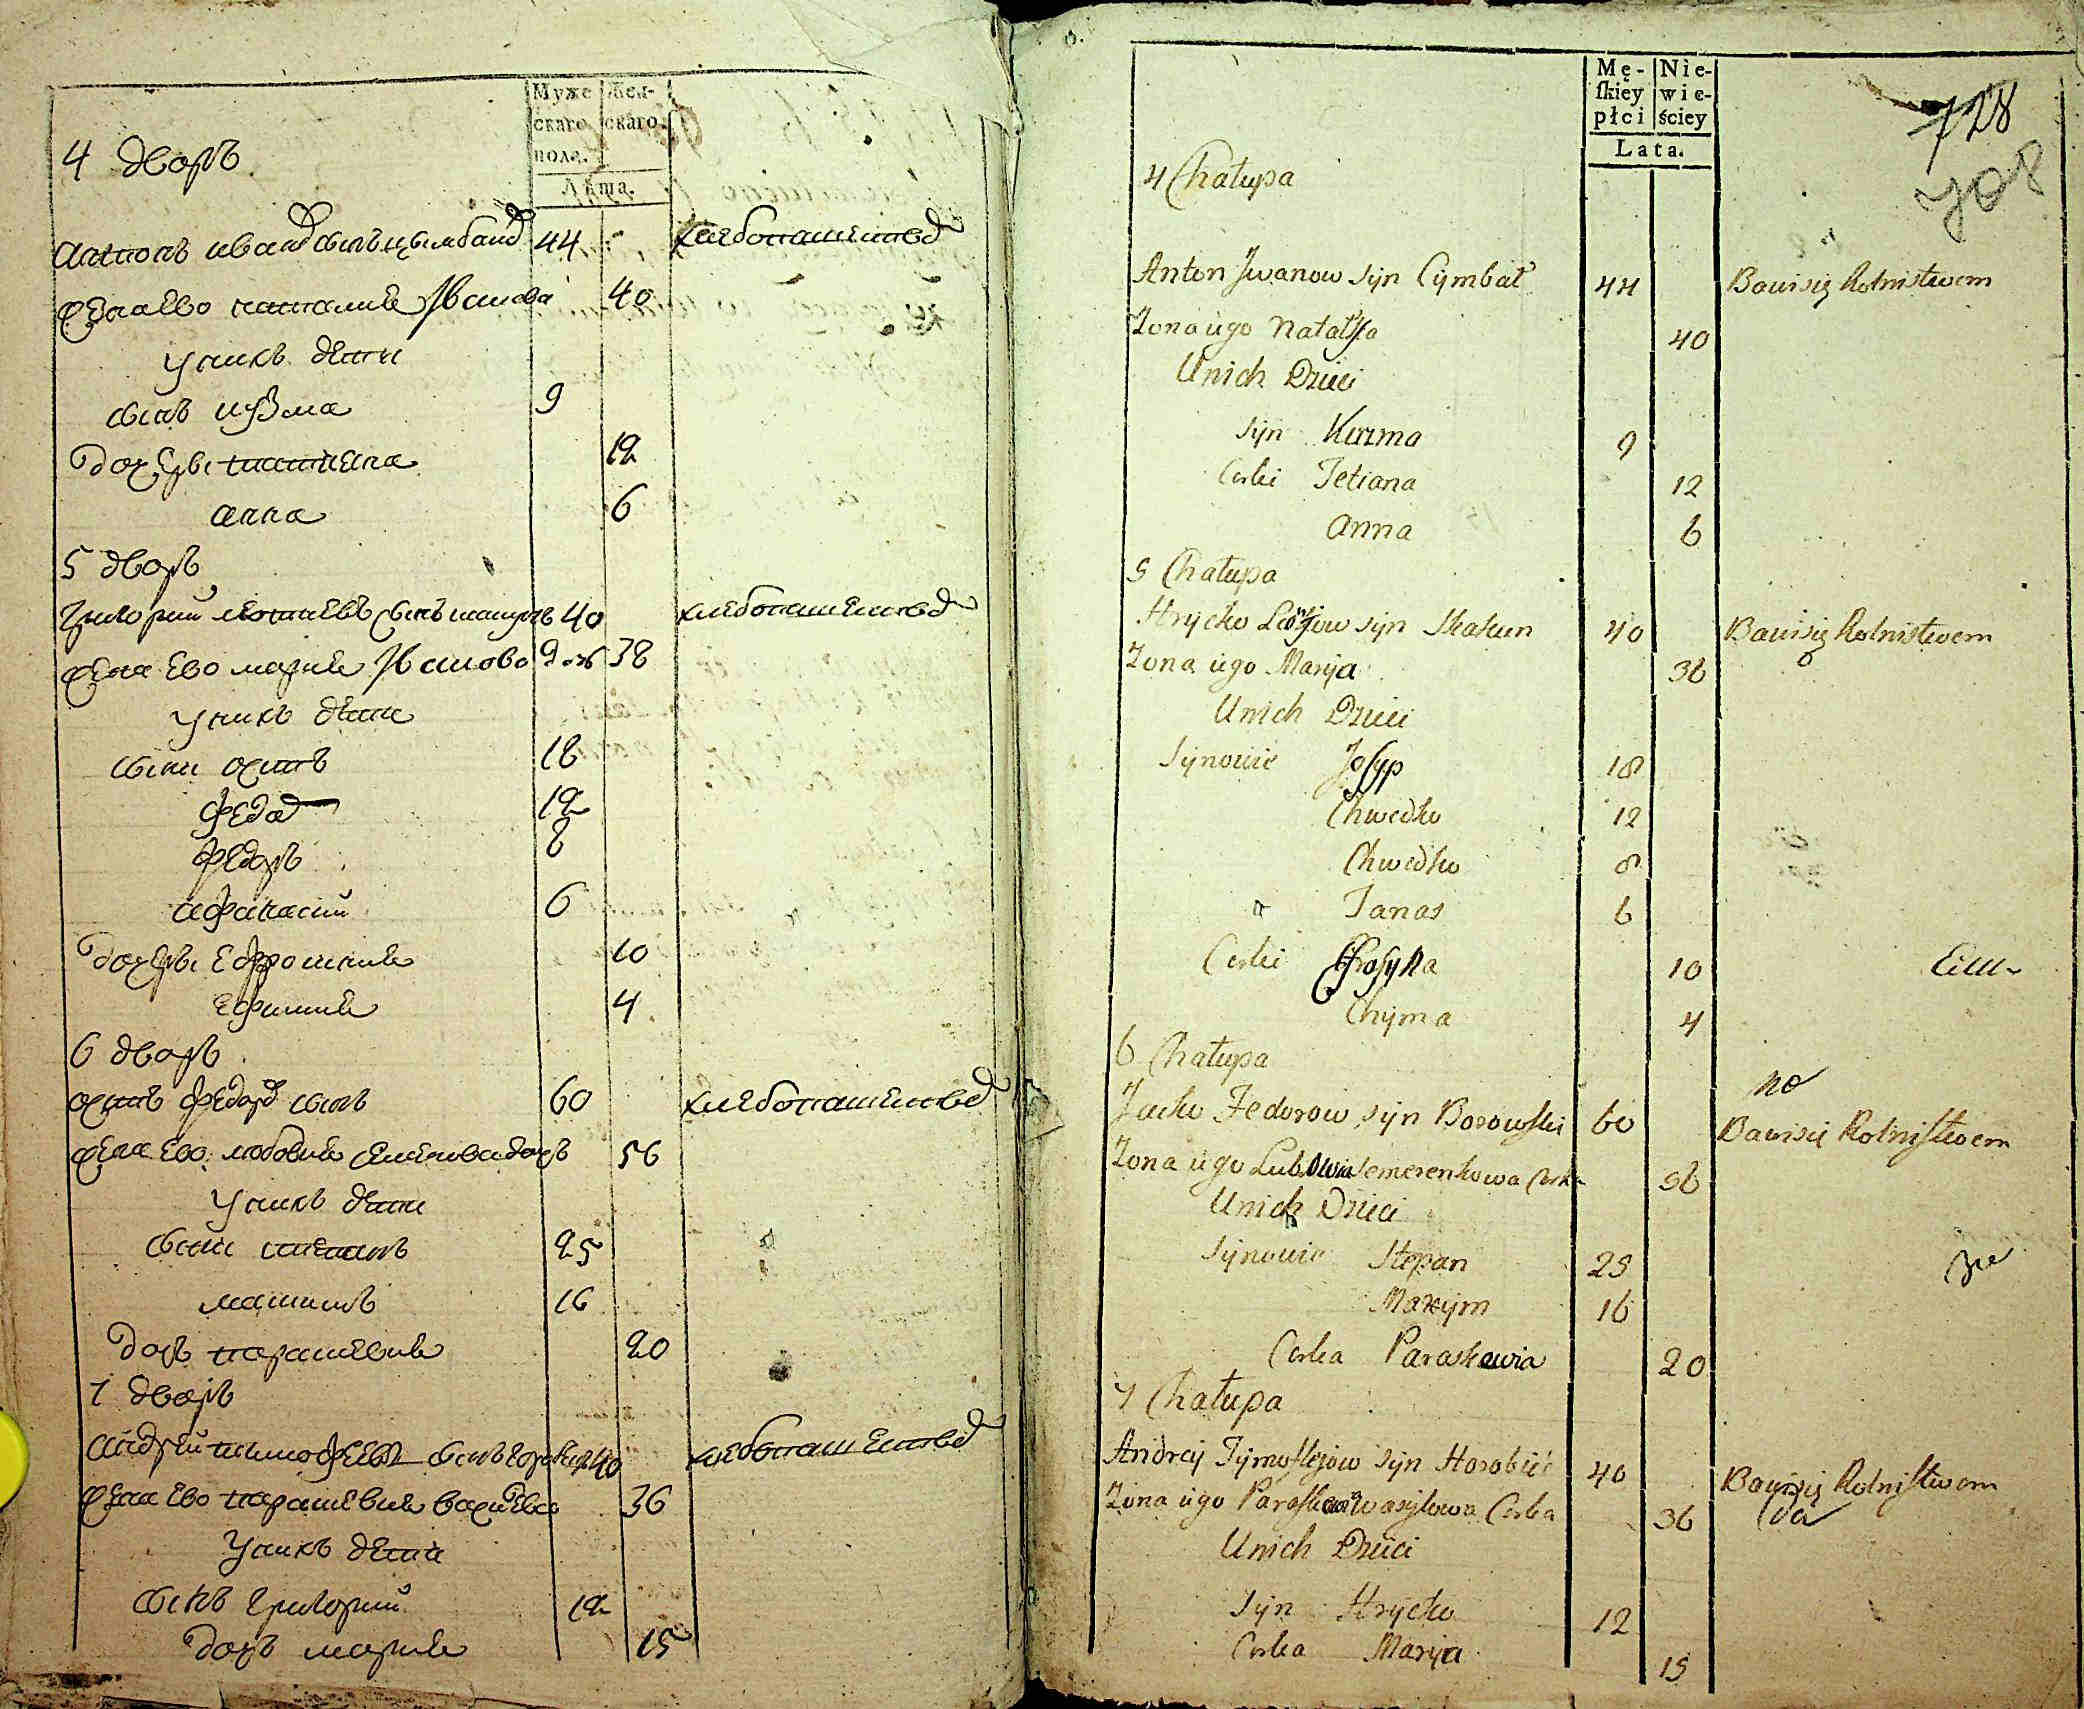 Муже
скаго
пола.
Жен-
скаго.
Лѣта.
4 дворъ
Антонъ Иванов сынъ Цымбалъ 44 хлебопашествъ
Жена ево Наталия Иванова 40
У них дети
сынъ Кузма 9
Дочери Татияна 12
Анна 6
5 дворъ
Григорий сынъ 40 хлебопашествъ
Жена ево Мария Иванова доч 38
У них дети
сыни Осипъ 18
Федор 12
Федоръ 8
Афанасий 6
Дочери Ефросиния 10
Ефимия 4
6 дворъ
Осипъ Федоров сынъ 60 хлебопашествъ
Жена ево Любовия дочь 56
У них дети
Сыни Степанъ 25
Максимъ 16
Дочь Параскевия 20
7 дворъ
Андрей Тимофеевъ сынъ 40 хлебопашествъ
Жена ево Параскевия 36
У них дети
сынъ Григорий 12
Дочь Мария 15
Mę-
skiey
płci
Nie-
wie-
ściey
Lata.
728
708
4 Chałupa
Anton Jwanow syn Cymbał 44 Bawi się Rolnistwem
Zona iego Natalija 40
U nich Dzieci
syn Kuzma 9
Corki Tetiana 12
Anna 6
5 Chałupa
Hrycko syn Skakun 40 Bawi się Rolnistwem
Zona iego Marija 36
U nich Dzieci
Synowie Josyp 18
Chwedko 12
Chwedko 8
Tanas 6
Corki Efrosyna 10
Chyma 4
6 Chałupa
по
Jacko Fedorow syn Borowski 60 Bawi się Rolnistwem
Zona iego Lubowia Semerenkowa Corka 56
U nich Dzieci
Synowie Stepan 25
Maxym 16
Corka Paraskewia 20
7 Chałupa
Andrey Tymofiejow syn Horobiec 40 Bawi się Rolnistwem
Zona iego Paraskewia Wasylowa Corka 36
U nich Dzieci
Syn Hrycko 12
Corka Marija 15